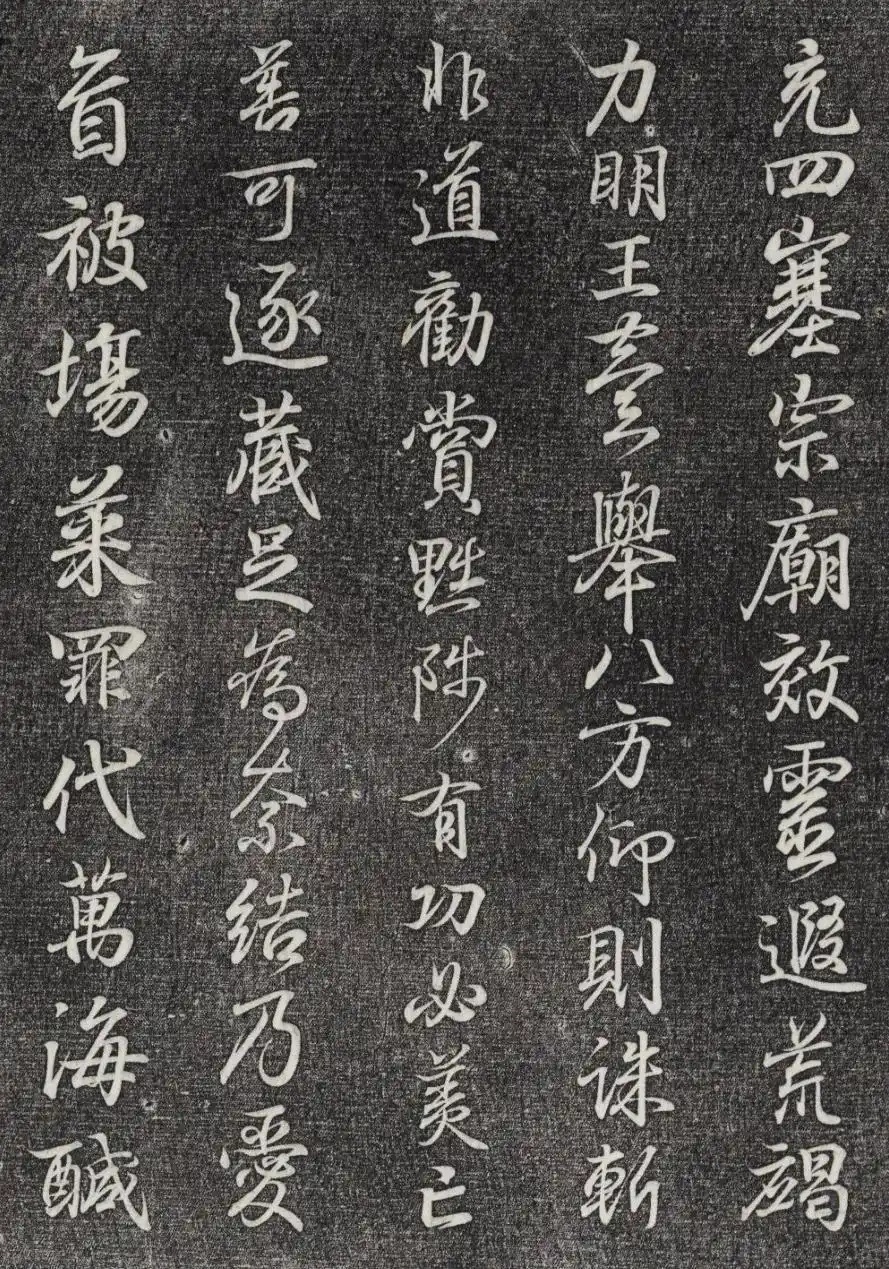 充四塞宗廟效靈遐荒竭
力明王壹舉八方仰則誅斬
非道勸賞黜陟有功必美亡
善可逐藏足為奈結乃愛
首被場菜罪代萬海醎